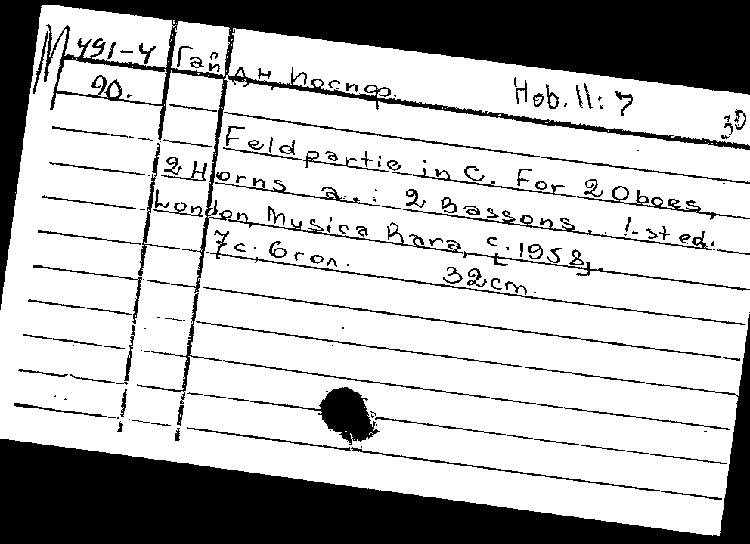 М 491-4 Гайдн, Йосиф. Hob. II: 7 30
90.
Feldpartie in C. For 2 Oboes,
2 Horns a..: 2 Bassons.. 1-st ed.
London, Musica Rara, [c. 1958].
7 с; 6 гол. 32 cm.